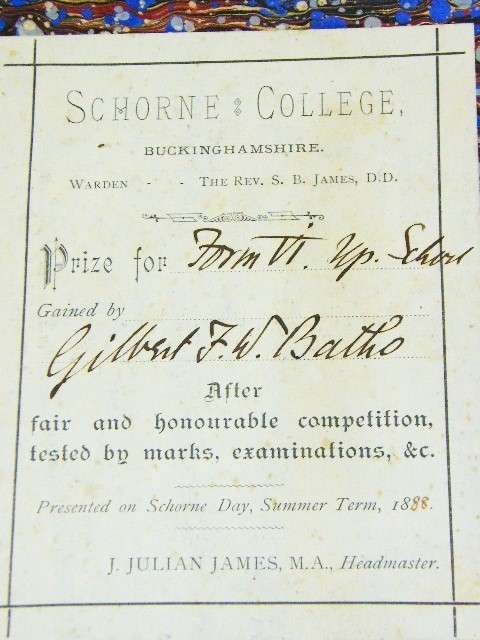 SCHORNE : COLLEGE,
BUCKINGHAMSHIRE.
WARDEN - - THE REV. S. B. JAMES, D.D.
Prize for Form VI. Up. School
Gained by
Gilbert F. W. Batho
After
fair and honourable competition,
tested by marks, examinations, &c.
Presented on Schorne Day, Summer Term, 1888.
J. JULIAN JAMES, M.A., Headmaster.